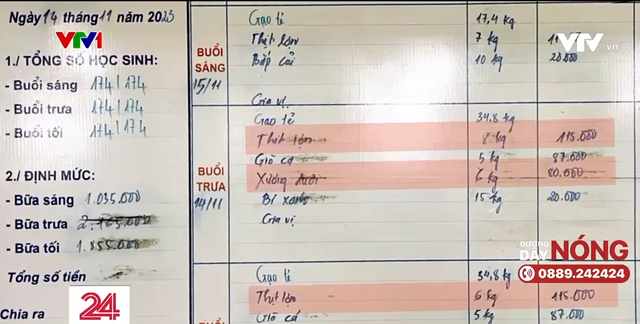 Ngày 14 tháng 11 năm 2023
VTV1
1./ TỔNG SỐ HỌC SINH:
- Buổi sáng 174/174
- Buổi trưa 174/174
- Buổi tối 174/174
2./ ĐỊNH MỨC:
- Bữa sáng 1.035.000
- Bữa trưa
- Bữa tối 1.855.000
Tổng số tiền
Chia ra
24
BUỔI SÁNG 15/11
Gạo tẻ 17,4 kg
Thịt lợn 7 kg
Bắp cải 10 kg 20.000
Gia vị
BUỔI TRƯA 14/11
Gạo tẻ 34,8 kg
Thịt lợn 8 kg 115.000
Giò cá 5 kg 87.000
Xương đuôi 6 kg 80.000
Bí xanh 15 kg 20.000
Gia vị
BUỔI
Gạo tẻ 34,8 kg
Thịt lợn 6 kg 115.000
Giò cá 5 kg 87.000
VTV
ĐƯỜNG DÂY NÓNG
0889.242424